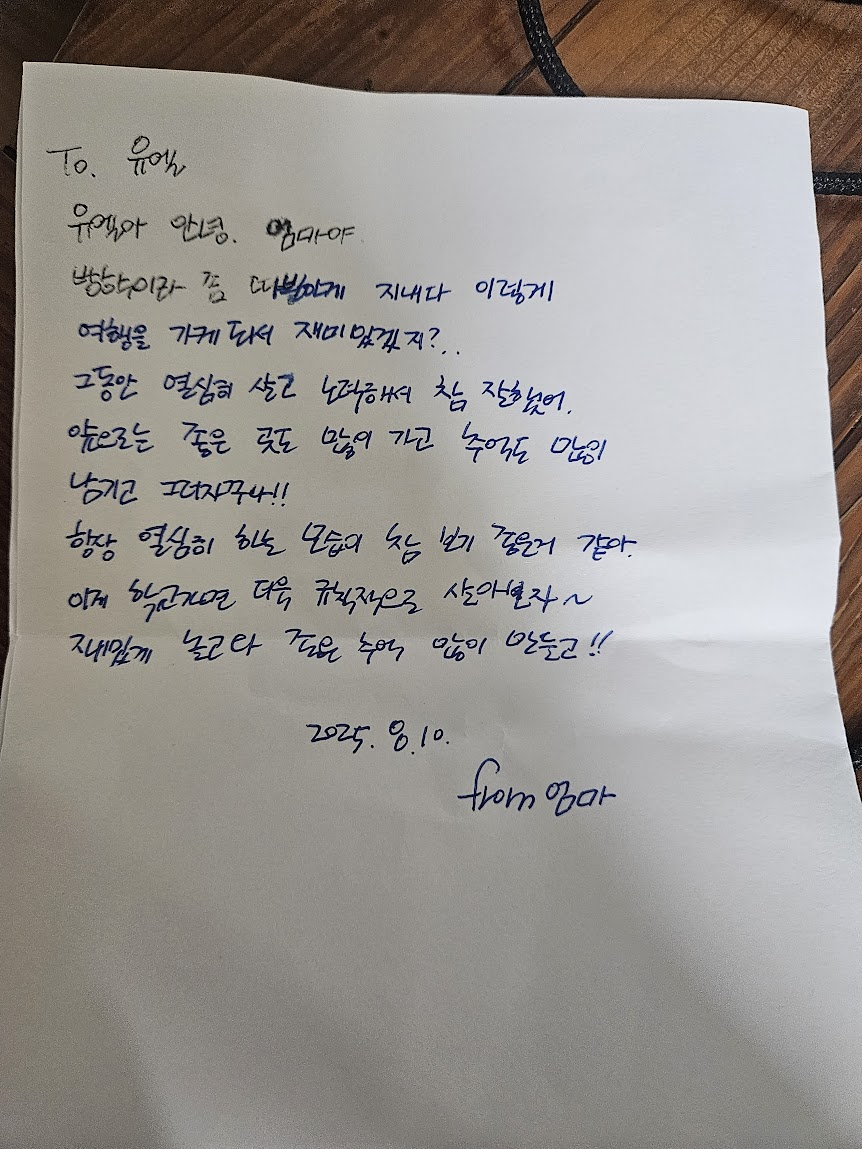 To. 유엘
유엘아 안녕. 엄마야
방학이라 좀 따분하게 지내다 이렇게
여행을 가게 되서 재미있겠지?..
그동안 열심히 살고 노력해서 참 잘했어.
앞으로는 좋은 곳도 많이 가고 추억도 많이
남기고 그러자꾸나!!
항상 열심히 하는 모습이 참 보기 좋은거 같아.
이제 학교가면 더욱 규칙적으로 살아보자~
재밌게 놀고 좋은 추억 많이 만들고!!
2025. 8. 10.
from 엄마